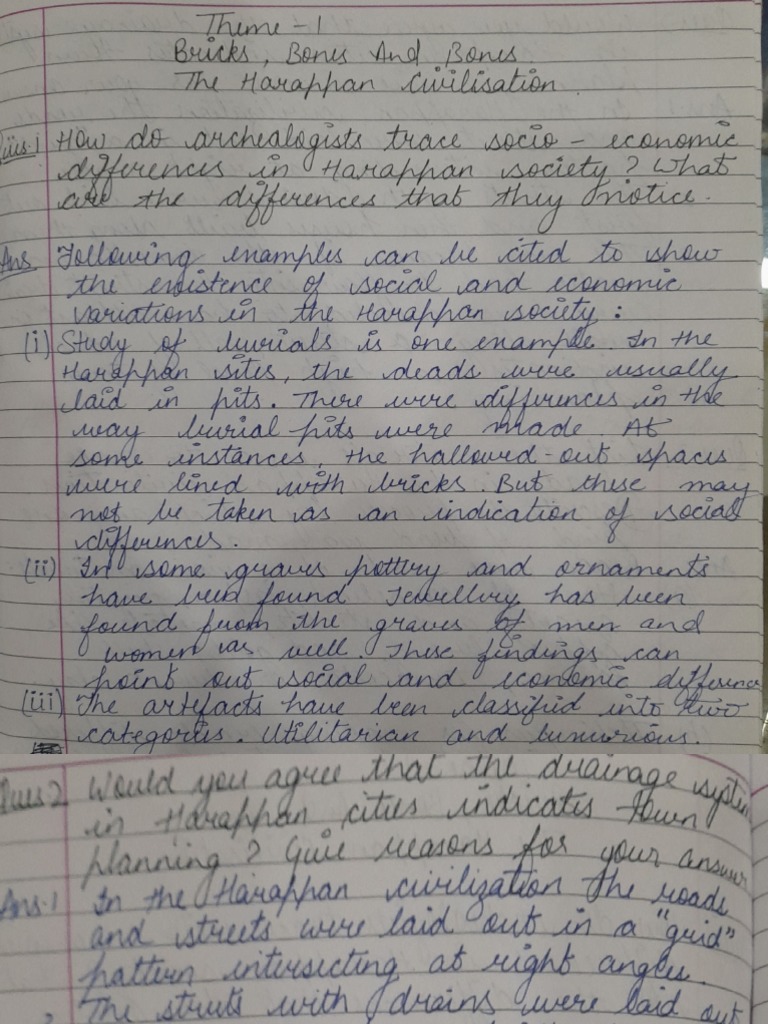 Theme - 1
Bricks, Bones And Bones
The Harappan Civilisation
Ques.1 How do archealogists trace socio - economic
differences in Harappan society? What
are the differences that they notice.
Ans Following examples can be cited to show
the existence of social and economic
variations in the Harappan society :
(i) Study of burials is one example. In the
Harappan sites, the deads were usually
laid in pits. There were differences in the
way burial pits were made. At
some instances, the hallowed-out spaces
were lined with bricks. But these may
not be taken as an indication of social
differences.
(ii) In some graves pottery and ornaments
have been found Jewellery has been
found from the graves of men and
women as well. These findings can
point out social and economic differenc
(iii) The artefacts have been classified into two
categories. Utilitarian and luxurious.
Ques 2 Would you agree that the drainage system
in Harappan cities indicates town
planning? Give reasons for your answer
Ans.1 In the Harappan civilization the roads
and streets were laid out in a "grid"
pattern intersecting at right angles.
The streets with drains were laid out